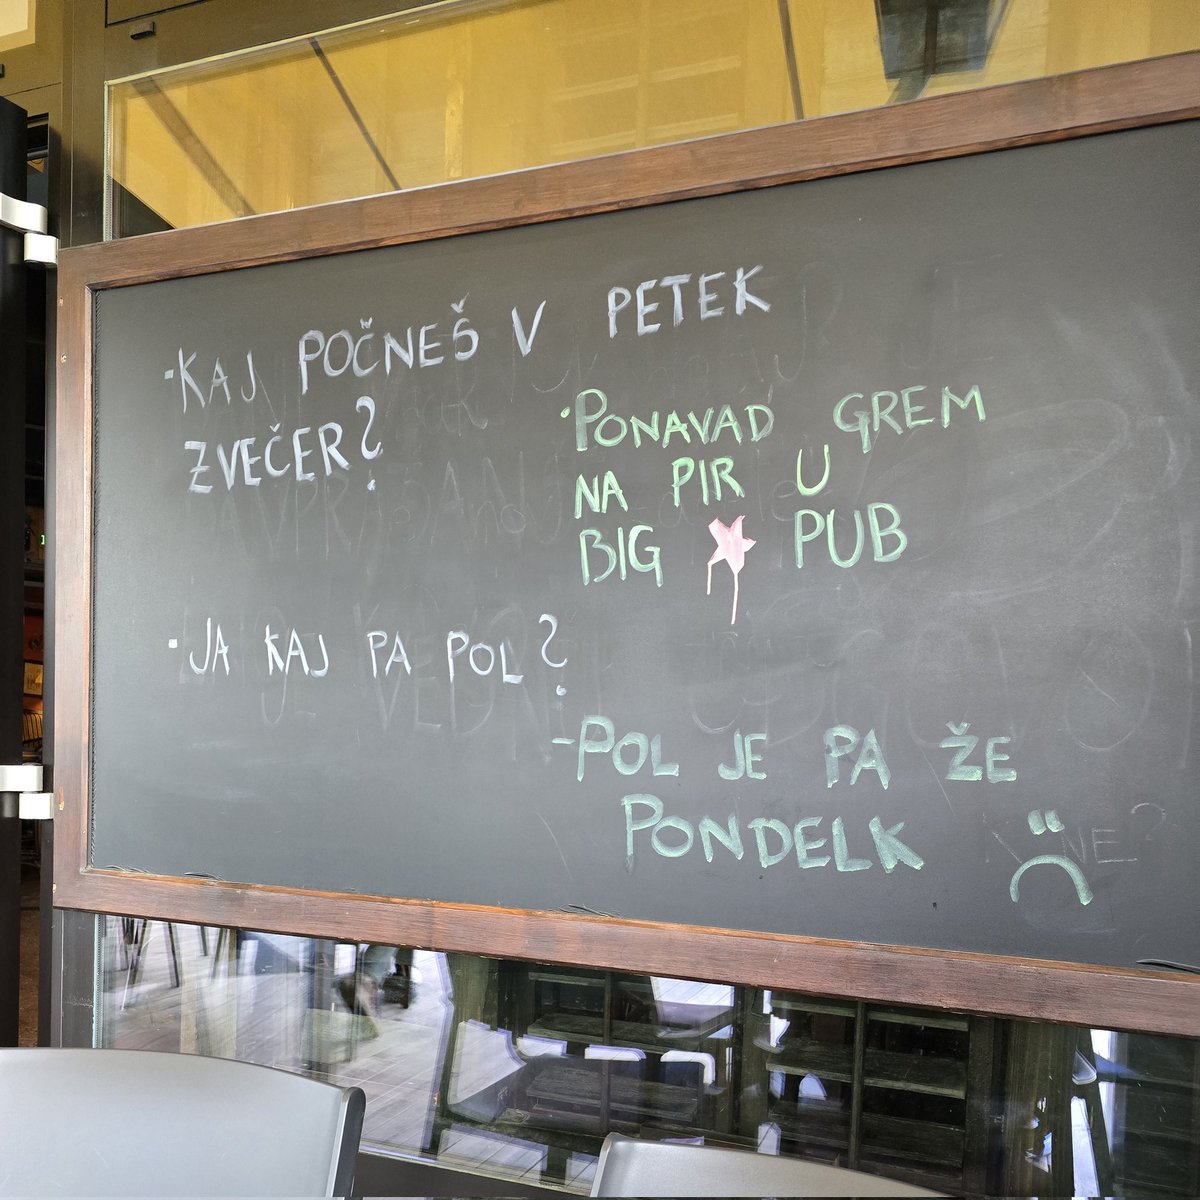 ·KAJ POČNEŠ V PETEK
ZVEČER?
·PONAVAD GREM
NA PIR U
BIG PUB
·JA KAJ PA POL?
-POL JE PA ŽE
PONDELK